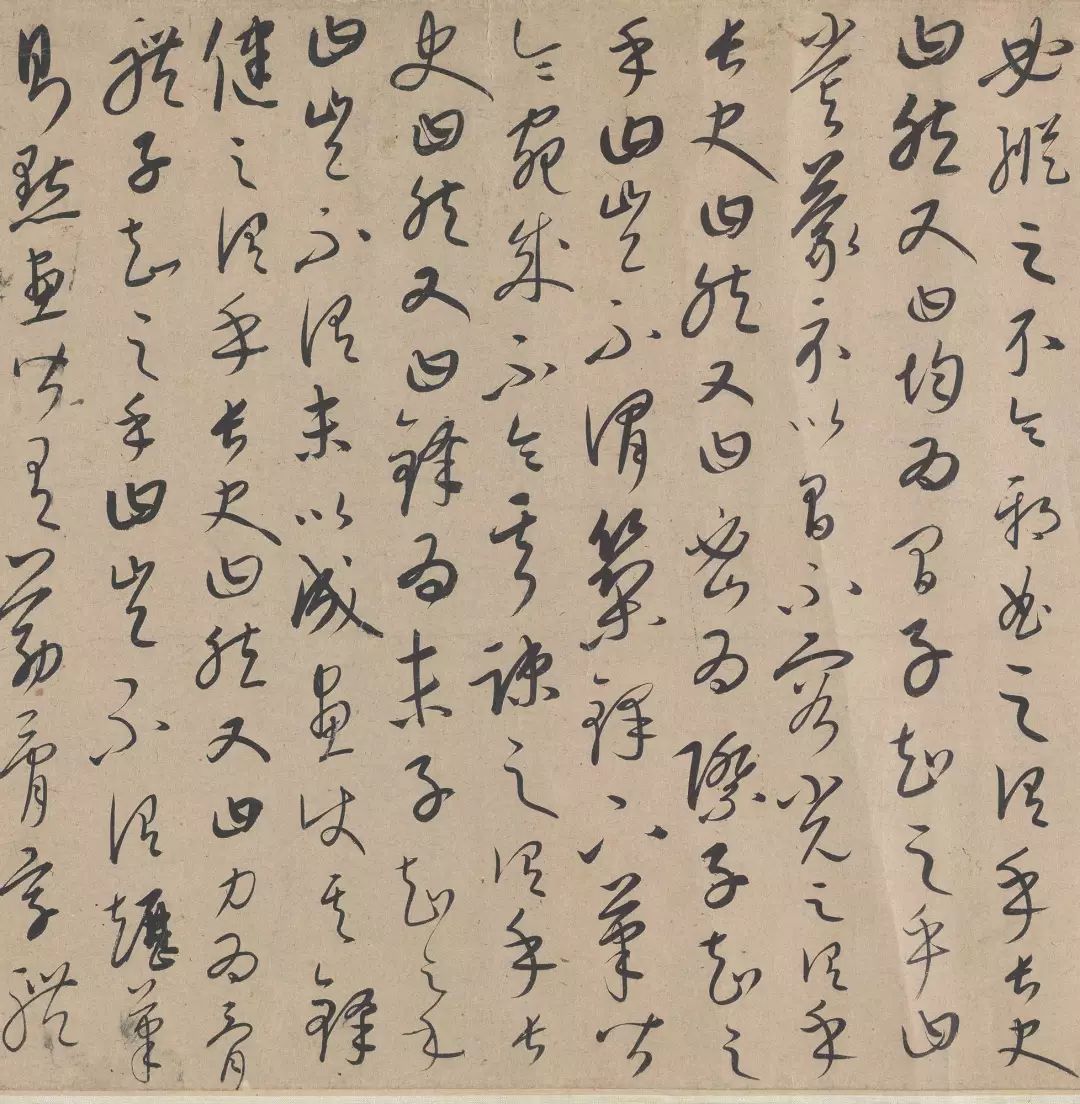 必縱之不令邪曲之謂乎長史
曰然又曰均為間子知之乎曰
嘗蒙示以間不容光之謂乎
長史曰然又曰密為際子知之
乎曰豈不謂築鋒下筆皆
令宛成不令其疎之謂乎長
史曰然又曰鋒為末子知之乎
曰豈不謂末以成畫使其鋒
健之謂乎長史曰然又曰力為骨
體子知之乎曰豈不謂趯筆
則點畫皆有筋骨字體